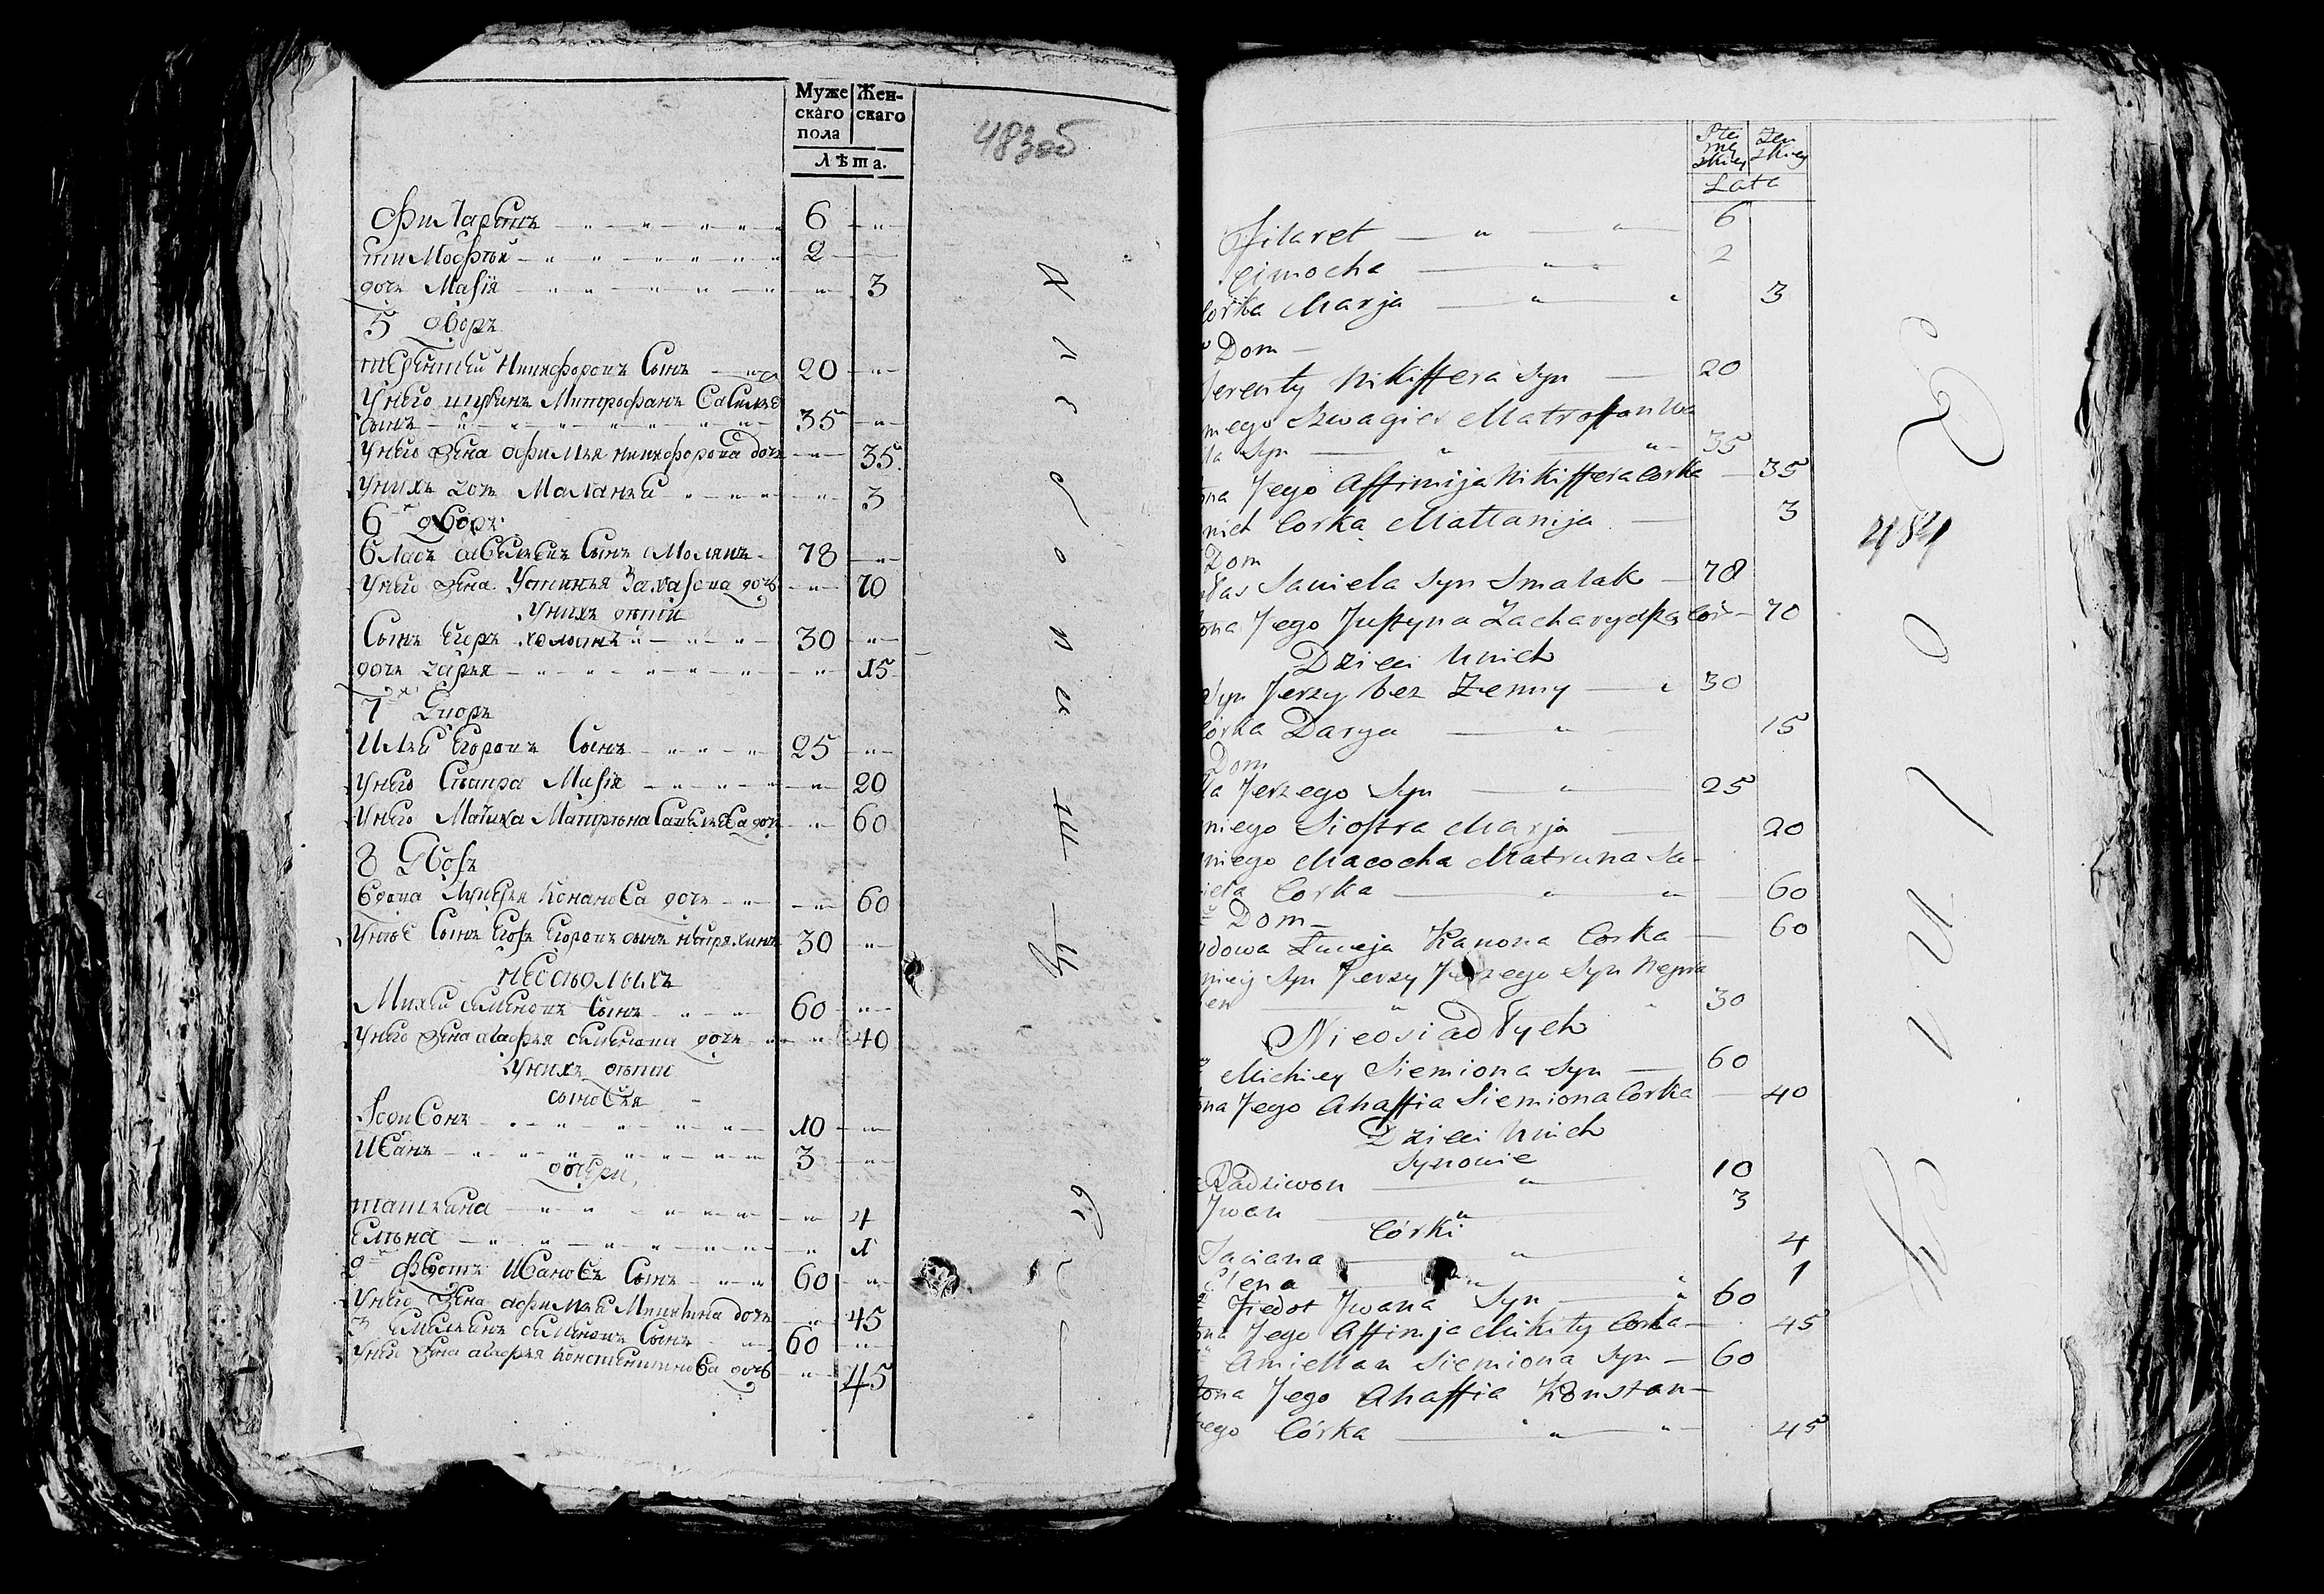 Муже
скаго
пола
Жен-
скаго
Лѣта.
483об
Филаретъ 6
тимофѣй 2
дочь Марія 3
5 дворъ
терентей Никифоровъ Сынъ 20
Унего шуринъ Митрофанъ Савельевъ
сынъ 35
Унего жена афимья никифорова дочь 35
Унихъ дочь Маланья 3
6 дворъ
Власъ Савельевъ Сынъ смолякъ 78
Унего жена Устинья Захарова дочь 70
Унихъ дѣти
Сынъ Егоръ холостъ 30
дочь дарья 15
7 дворъ
Илья Егоровъ Сынъ 25
Унего Сѣстра Марія 20
Унего Мачиха Матрѣна Савельева дочь 60
8 Дворъ
Вдова Лукерья Кононова дочь 60
Унеѣ Сынъ Егоръ Егоровъ сынъ 30
неоселыхъ
Михей семеновъ Сынъ 60
Унего жена агафья семенова дочь 40
Унихъ дѣти
сыновья
Родионъ 10
Иванъ 3
дочери
татьяна 4
Елѣна 1
2 Федотъ Ивановъ Сынъ 60
Унего жена афимья Микитина дочь 45
3 Емельянъ семеновъ Сынъ 60
Унего жена агафья констентинова дочь 45
Płci
mę
zkiey
Żeń
zkiey
Lata
Filaret 6
Cimocha 2
Córka Marja 3
Dom
Terenty Nikiffera Syn 20
niego Szwagier Matroffan
Syn 35
Jego Affimija Nikiffera Corka 35
nich Corka Mattanija 3
Dom
Sawieła Syn Smalak 78
Jego Justyna Zacharydzka Cór 70
Dzieci Unich
Syn Jerzy bez Żenny 30
Córka Darya 15
Dom
Jerzego Syn 25
niego Siostra Marja 20
niego Macocha Matruna Sa-
Corka 60
Dom
dowa Łucęja Kanona Corka 60
niej Syn Jerzy Jerzego Syn
30
Nieosiadłych
Michiey Siemiona Syn 60
Jego Ahaffia Siemiona Corka 40
Dzieci Unich
Synowie
Radziwon 10
Jwan 3
Córki
Taciana 4
Elena 1
Fiedot Jwana Syn 60
Jego Affimja Mikity Corka 45
Amiellan Siemiona Syn 60
Jego Ahaffia Konstan-
Córka 45
484